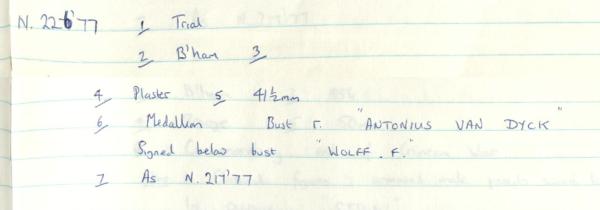 N. 226'77 1 Trial
2 B'ham 3
4 Plaster 5 41½mm
6 Medallion Bust r. "ANTONIUS VAN DYCK"
Signed below bust "WOLFF. F."
7 As N. 217'77